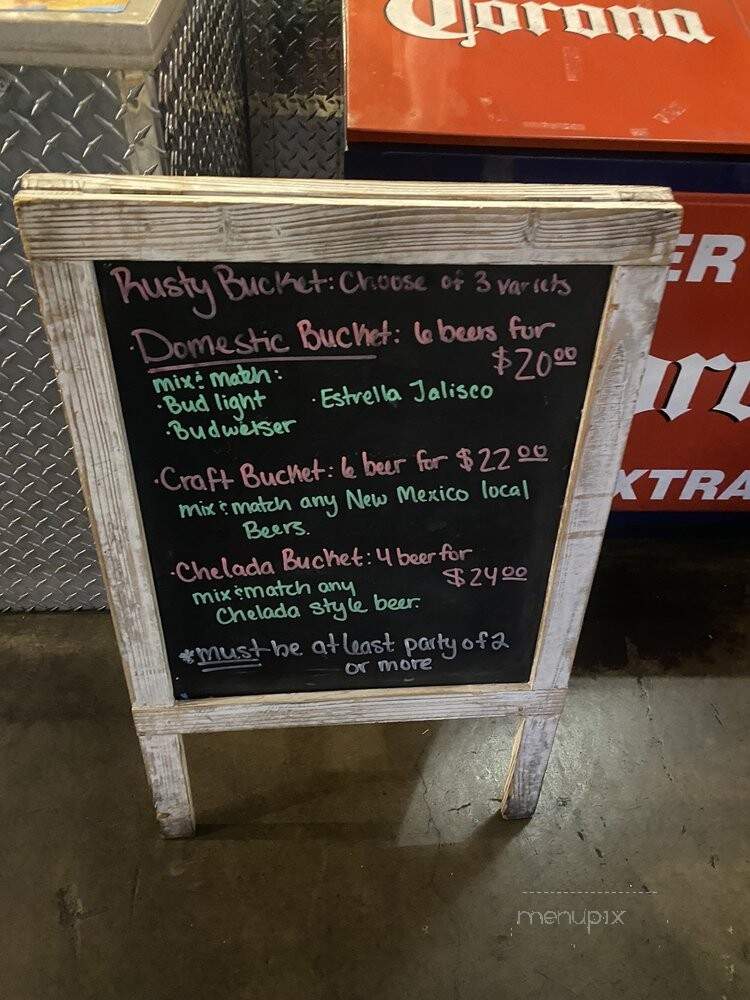 Corona
Rusty Bucket: Choose of 3 variets
· Domestic Bucket: 6 beers for
$20.00
mix & match:
· Bud light
· Estrella Jalisco
· Budweiser
· Craft Bucket: 6 beer for $22.00
mix & match any New Mexico local
Beers.
· Chelada Bucket: 4 beer for
$24.00
mix & match any
Chelada style beer.
*must be at least party of 2
or more
ER
XTRA
menupix